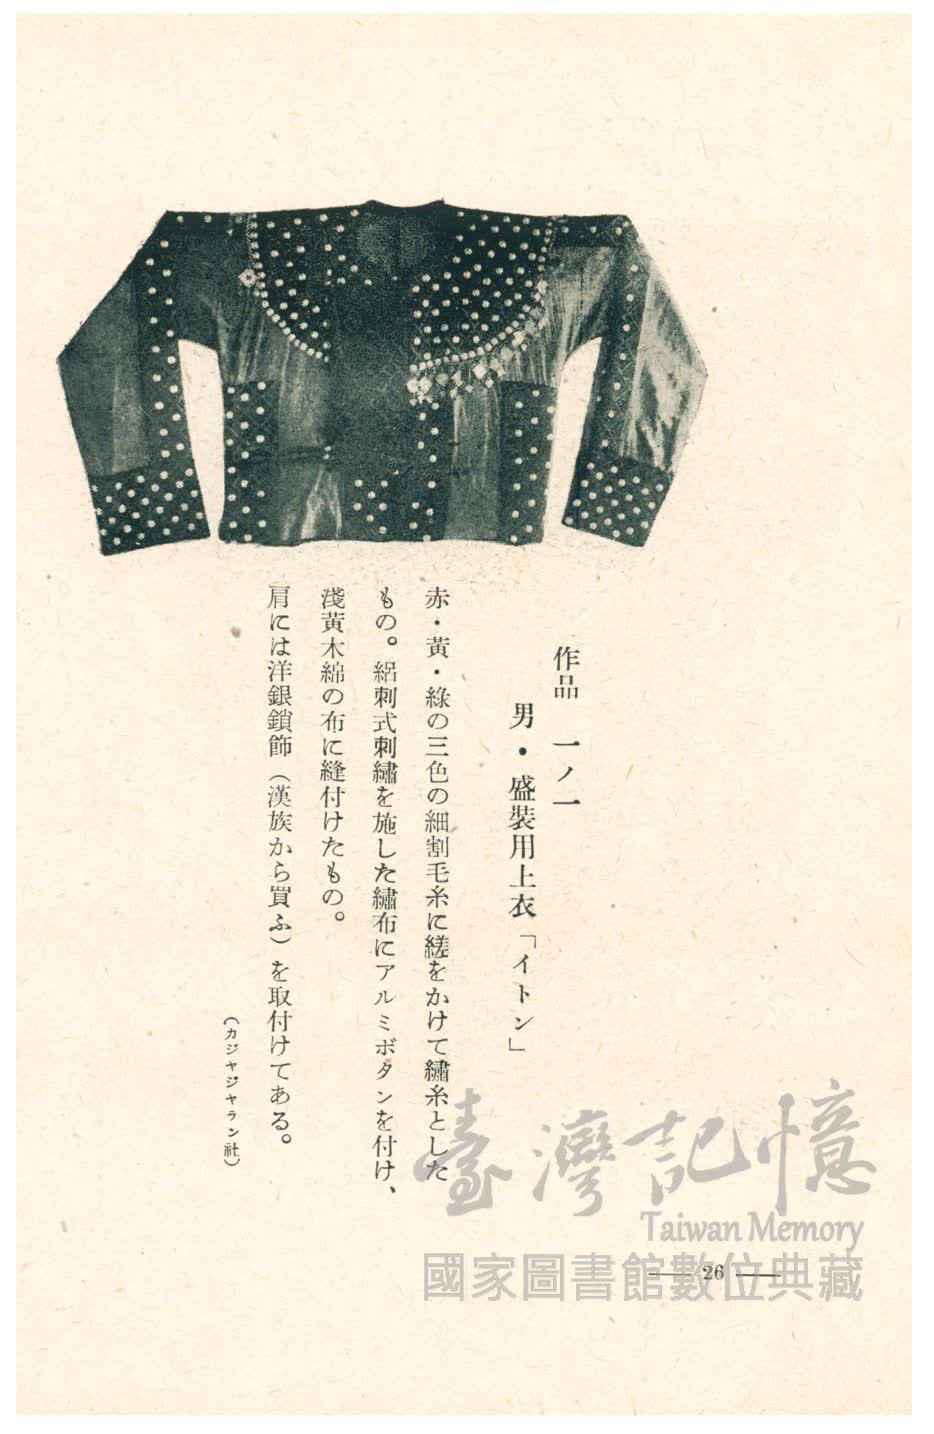 作品 一ノ一
男・盛裝用上衣「イトン」
赤・黃・綠の三色の細割毛糸に縒をかけて繡糸とした
もの。絽刺式刺繡を施した繡布にアルミボタンを付け、
淺黃木綿の布に縫付けたもの。
肩には洋銀鎖飾（漢族から買ふ）を取付けてある。
（カジャジャラン社）
臺灣記憶
Taiwan Memory
國家圖書館數位典藏
— 26 —